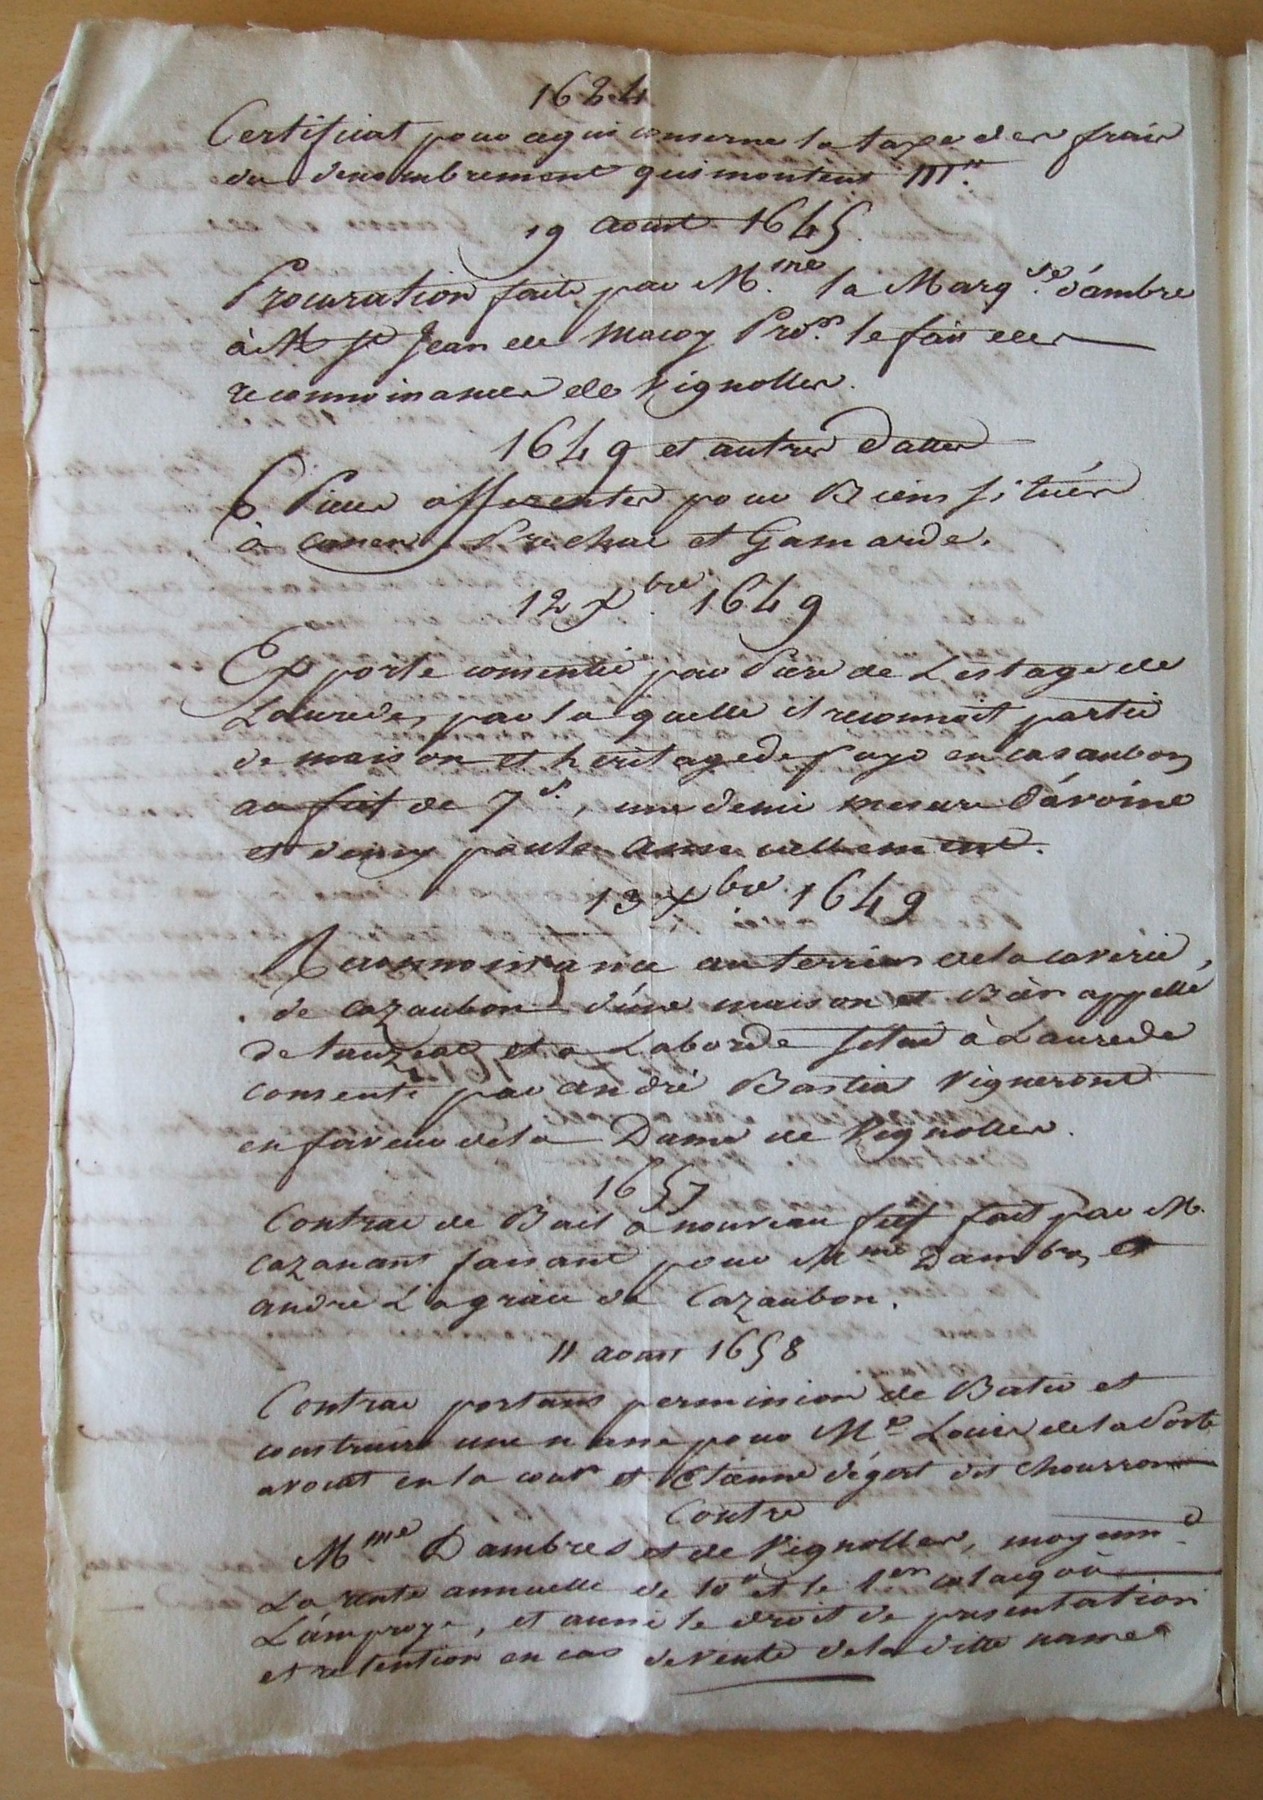 1624
Certificat pour ce qui conserne la taxe des frais
du denombrement qui montent
19 aoust 1645.
Procuration faite par M.me la Marq.se d'ambre
à M Jean de Macoy Pro.r le fait des
reconnoissances de Vignolles.
1649 et autres dattes
6 Pieces offerentes pour Biens situés
à Cassen, Prechac et Gamarde.
12 Xbre 1649
Exporle consentie par Pierre de Lestage de
Laurede, par laquelle il reconnoit partie
de maison et heritage de en casaubon
au fief de 7 s., une demi mesure d'avoine
et demy poule annuellement.
13 Xbre. 1649
Reconnoissance au terrier de la caverie,
de Cazaubon d'une maison et Bien appellé
de tauzeac et a Laborde situé à Laurede
consenti par andré Bastia Vigneront
en faveur de la Dame de Vignolles.
1657
Contrac de Bail à nouveau fief fait par M.
Cazanant faisant pour Mme Dambres et
andré Lagraue de Cazaubon.
11 aoust 1658
Contrac portant permission de Batir et
construire une nasse pour Me. Louis de la Porte
avocat en la cour et Etienne dégert dit chourron
Contre
M.me Dambres et de Vignolles, moyenn.t
La rente annuelle de 10 # et le 1er colacq où
Lamproye, et aussi le droit de presentation
et retention en cas de vente de la ditte nasse